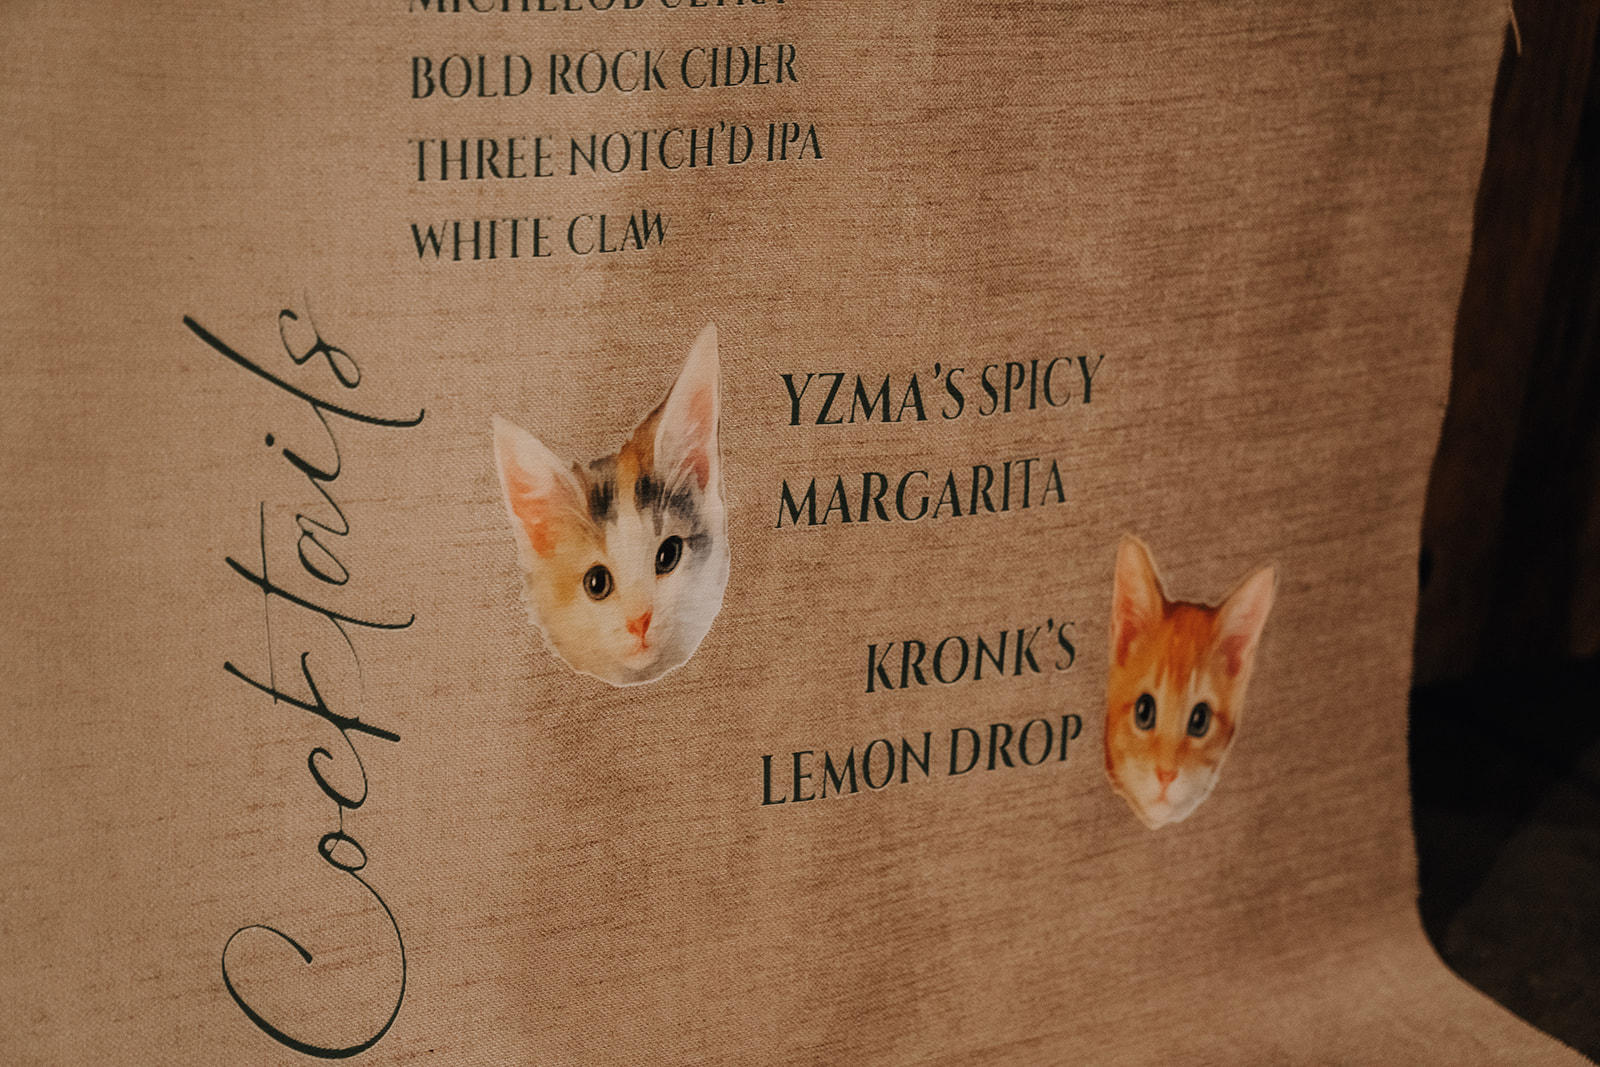 MICHELOB ULTRA
BOLD ROCK CIDER
THREE NOTCH'D IPA
WHITE CLAW
Cocktails
YZMA'S SPICY
MARGARITA
KRONK'S
LEMON DROP